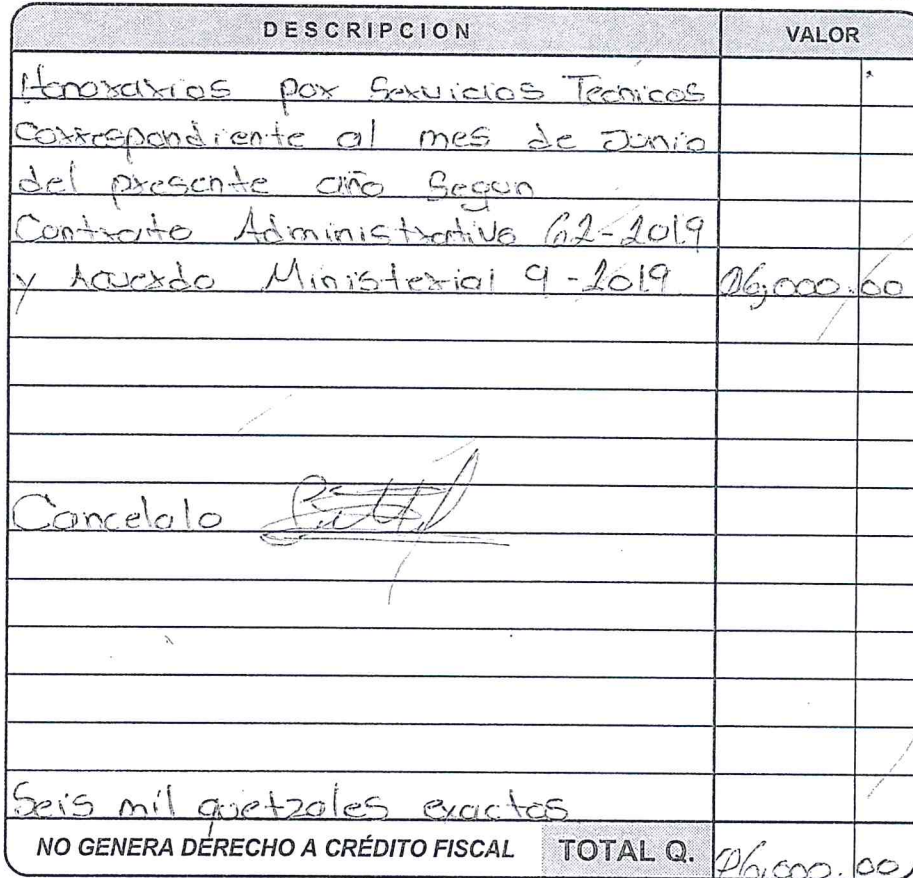 DESCRIPCION VALOR
Honorarios por Servicios Tecnicos
Correspondiente al mes de Junio
del presente año Segun
Contrato Administrativo 62-2019
y Acuerdo Ministerial 9-2019 Q6,000.00
Cancelalo
Seis mil quetzales exactos
NO GENERA DERECHO A CRÉDITO FISCAL TOTAL Q. Q6,000.00